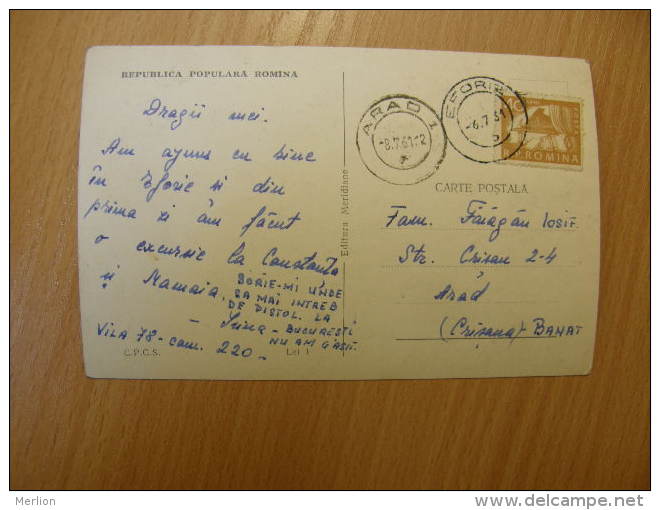 REPUBLICA POPULARĂ ROMÎNA
Dragii mei.
Am ajuns cu bine
în Eforie si din
prima zi am făcut
o excursie la Constanța
și Mamaia,
SCRIE-MI UNDE
SA MAI INTREB
DE PISTOL. LA
BUCURESTI
NU AM GĂSIT.
VILA 78 - cam. 220 -
C.P.C.S.
Lei 1
Editura Meridiane
ARAD 1
-8.7.61.-2
EFORIE
-6.7.61
R.P.ROMINA
CARTE POȘTALĂ
Fam. Iosif
Str. Crisan 2-4
Arad
(Crișana) - BANAT
Merlion
www.delcampe.net